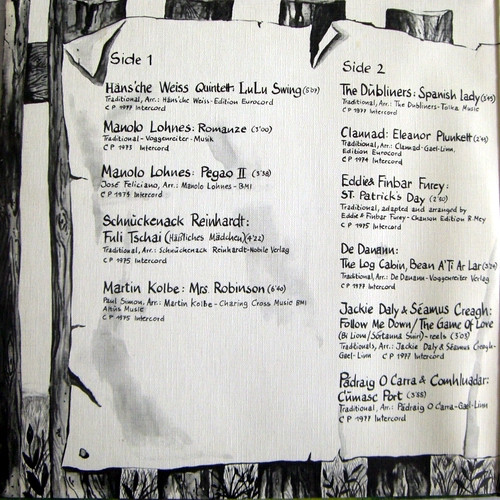 Side 1
Häns'che Weiss Quintett: LuLu Swing (5'07)
Traditional, Arr.: Häns'che Weiss-Edition Eurocord
C P 1977 Intercord
Manolo Lohnes: Romanze (3'00)
Traditional-Voggenreiter-Musik
C P 1973 Intercord
Manolo Lohnes: Pegao II (3'38)
José Feliciano, Arr.: Manolo Lohnes-BMI
C P 1973 Intercord
Schnuckenack Reinhardt:
Fuli Tschai (Häßliches Mädchen) (4'22)
Traditional, Arr.: Schnuckenack Reinhardt-Nobile Verlag
C P 1975 Intercord
Martin Kolbe: Mrs. Robinson (6'40)
Paul Simon, Arr.: Martin Kolbe-Charing Cross Music BMI
Altus Music
C P 1975 Intercord
Side 2
The Dubliners: Spanish Lady
Traditional, Arr.: The Dubliners-Tolka Music
C P 1977 Intercord
Clannad: Eleanor Plunkett
Traditional, Arr.: Clannad-Gael-Linn.
Edition Eurocord
C P 1974 Intercord
Eddie & Finbar Furey:
ST. Patrick's Day (2'50)
Traditional, adapted and arranged by
Eddie & Finbar Furey-Chanson Edition R. Mey
C P 1975 Intercord
De Danann:
The Log Cabin, Bean A'Ti Ar Lar
Traditional, Arr.: De Danann-Voggenreiter Verlag
C P 1977 Intercord
Jackie Daly & Séamus Creagh:
Follow Me Down/The Game Of Love
reels (3'03)
Traditionals, Arr.: Jackie Daly & Séamus Creagh-
Gael-Linn C P 1977 Intercord
Pádraig O Carra & Comhluadar:
Cúmasc Port (3'55)
Traditional, Arr.: Pádraig O Carra-Gael-Linn
C P 1977 Intercord